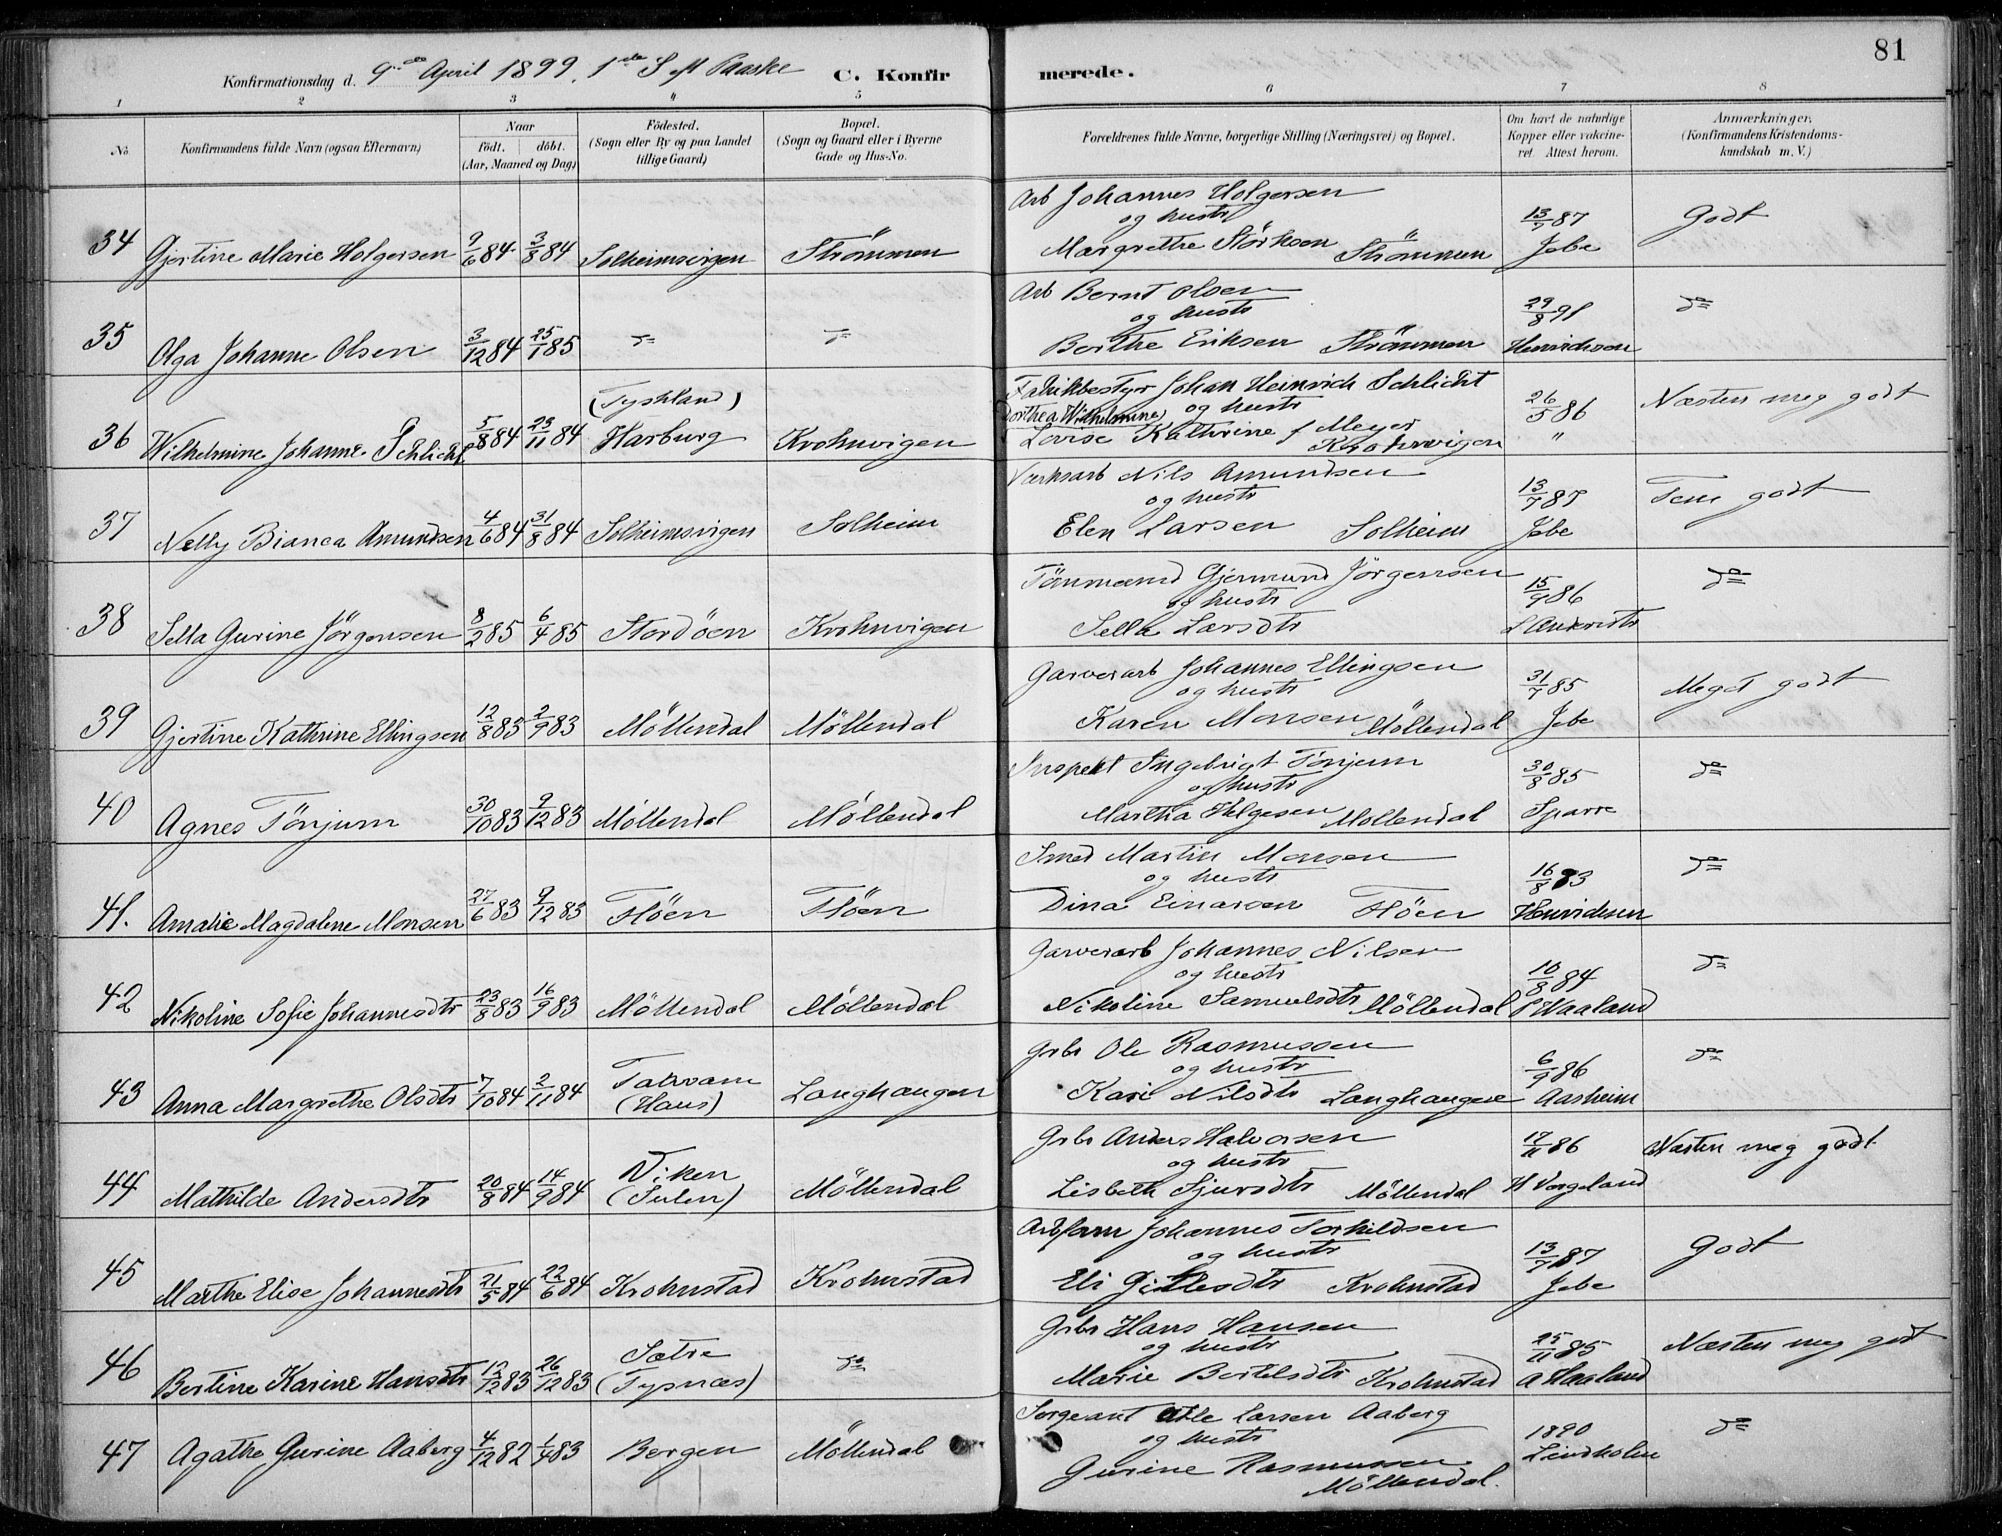 81
Konfirmationsdag d. 9de April 1899. 1ste S eft Paaske C. Konfirmerede.
1 2 3 4 5 6 7 8
No. Konfirmandens fulde Navn (ogsaa Efternavn) Naar födt. döbt. (Aar, Maaned og Dag) Födested. (Sogn eller By og paa Landet tillige Gaard) Bopæl. (Sogn og Gaard eller i Byerne Gade og Hus-No. Forældrenes fulde Navne, borgerlige Stilling (Næringsvei) og Bopæl. Om havt de naturlige Kopper eller vakcineret. Attest herom. Anmærkninger. (Konfirmandens Kristendomskundskab m. V.)
Arb Johannes Holgersen
og hustr
34 Gjertine Marie Holgersen 9/6 84 3/8 84 Solheimsvigen Strömmen Margrethe Störksen Strömmen 13/7 87 Jebe Godt
Arb Bernt Olsen
og hustr
35 Olga Johanne Olsen 3/12 84 25/1 85 do do Berthe Eriksen Strömmen 29/8 91 Henrichsen do
Fabrikbestyr Johan Heinrich Schlicht
Dorthea Wilhelmine og hustr
36 Wilhelmine Johanne Schlicht 5/8 84 23/11 84 (Tyskland) Harburg Krohnvigen Lovise Kathrine f Meyer Krohnvigen 26/5 86 " Næsten meg godt
Værksarb Nils Amundsen
og hustr
37 Nelly Bianca Amundsen 4/6 84 31/8 84 Solheimsvigen Solheim Elen Larsen Solheim 13/7 87 Jebe Tem godt
Tömmermd Gjermund Jörgensen
og hustr
38 Sella Gurine Jörgensen 8/2 85 6/4 85 Stordöen Krohnvigen Sella Larsdtr 15/9 86 L Andersdtr do
Garverarb Johannes Ellingsen
og hustr
39 Gjertine Kathrine Ellingsen 12/8 83 2/9 83 Möllendal Möllendal Karen Monsen Möllendal 31/7 85 Jebe Meget godt
Inspekt Ingebrigt Tönjum
og hustr
40 Agnes Tönjum 30/10 83 9/12 83 Möllendal Möllendal Martha Helgesen Möllendal 30/8 85 Sparre do
Smed Martin Monsen
og hustr
41. Amalie Magdalene Monsen 27/6 83 9/12 83 Flöen Flöen Dina Einarsen Flöen 16/8 83 Henrichsen do
Garverarb Johannes Nilsen
og hustr
42 Nikoline Sofie Johannesdtr 23/8 83 16/9 83 Möllendal Möllendal Nikoline Samuelsdtr Möllendal 10/8 84 Haaland do
Grbr Ole Rasmussen
og hustr
43 Anna Margrethe Olsdtr 7/10 84 2/11 84 Takvam (Haus) Langhaugen Kari Nilsdtr Langhaugen 6/9 86 Aasheim do
Grbr Anders Halvorsen
og hustr
44 Mathilde Andersdtr 20/8 84 14/9 84 Niken (Sulen) Möllendal Lisbeth Sjursdtr Möllendal 17/11 86 H Vergeland Næsten meg godt
Arbform Johannes Torkildsen
og hustr
45 Marthe Elise Johannesdtr 21/5 84 22/6 84 Krohnstad Krohnstad Eli Gitlesdtr Krohnstad 13/7 87 Jebe Godt
Grbr Hans Hansen
og hustr
46 Bertine Karine Hansdtr 12/12 83 26/12 83 Sætre (Tysnæs) do Marie Bertelsdtr Krohnstad 25/11 85 A Haaland Næsten meg godt
Sergeant Atle Larsen Aaberg
og hustr
47 Agathe Gurine Aaberg 4/12 82 1/4 83 Bergen Möllendal Gurine Rasmussen Möllendal. 1890 Lindholm do